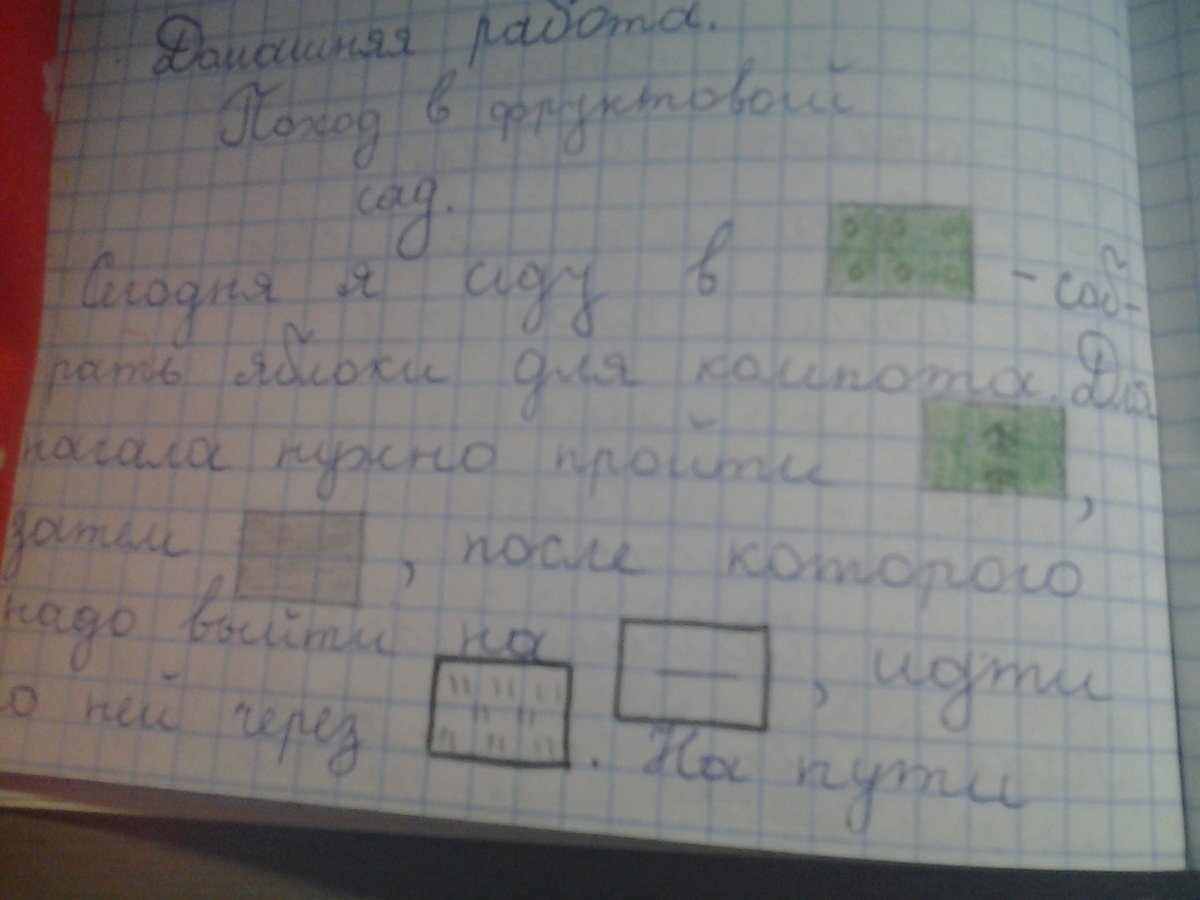 Домашняя работа.
Поход в фруктовый
сад.
Сегодня я иду в - соб-
рать яблоки для компота. Для
начала нужно пройти ,
затем , после которого
надо выйти на , идти
о ней через . На пути